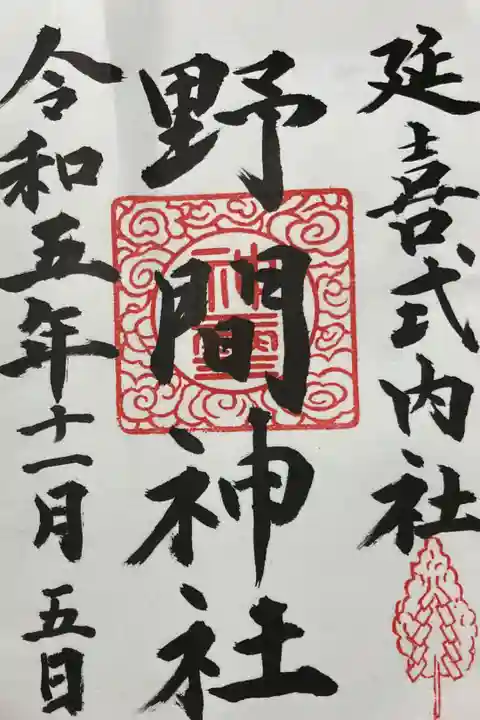 延喜式内社
野間神社
令和五年十一月五日
神璽